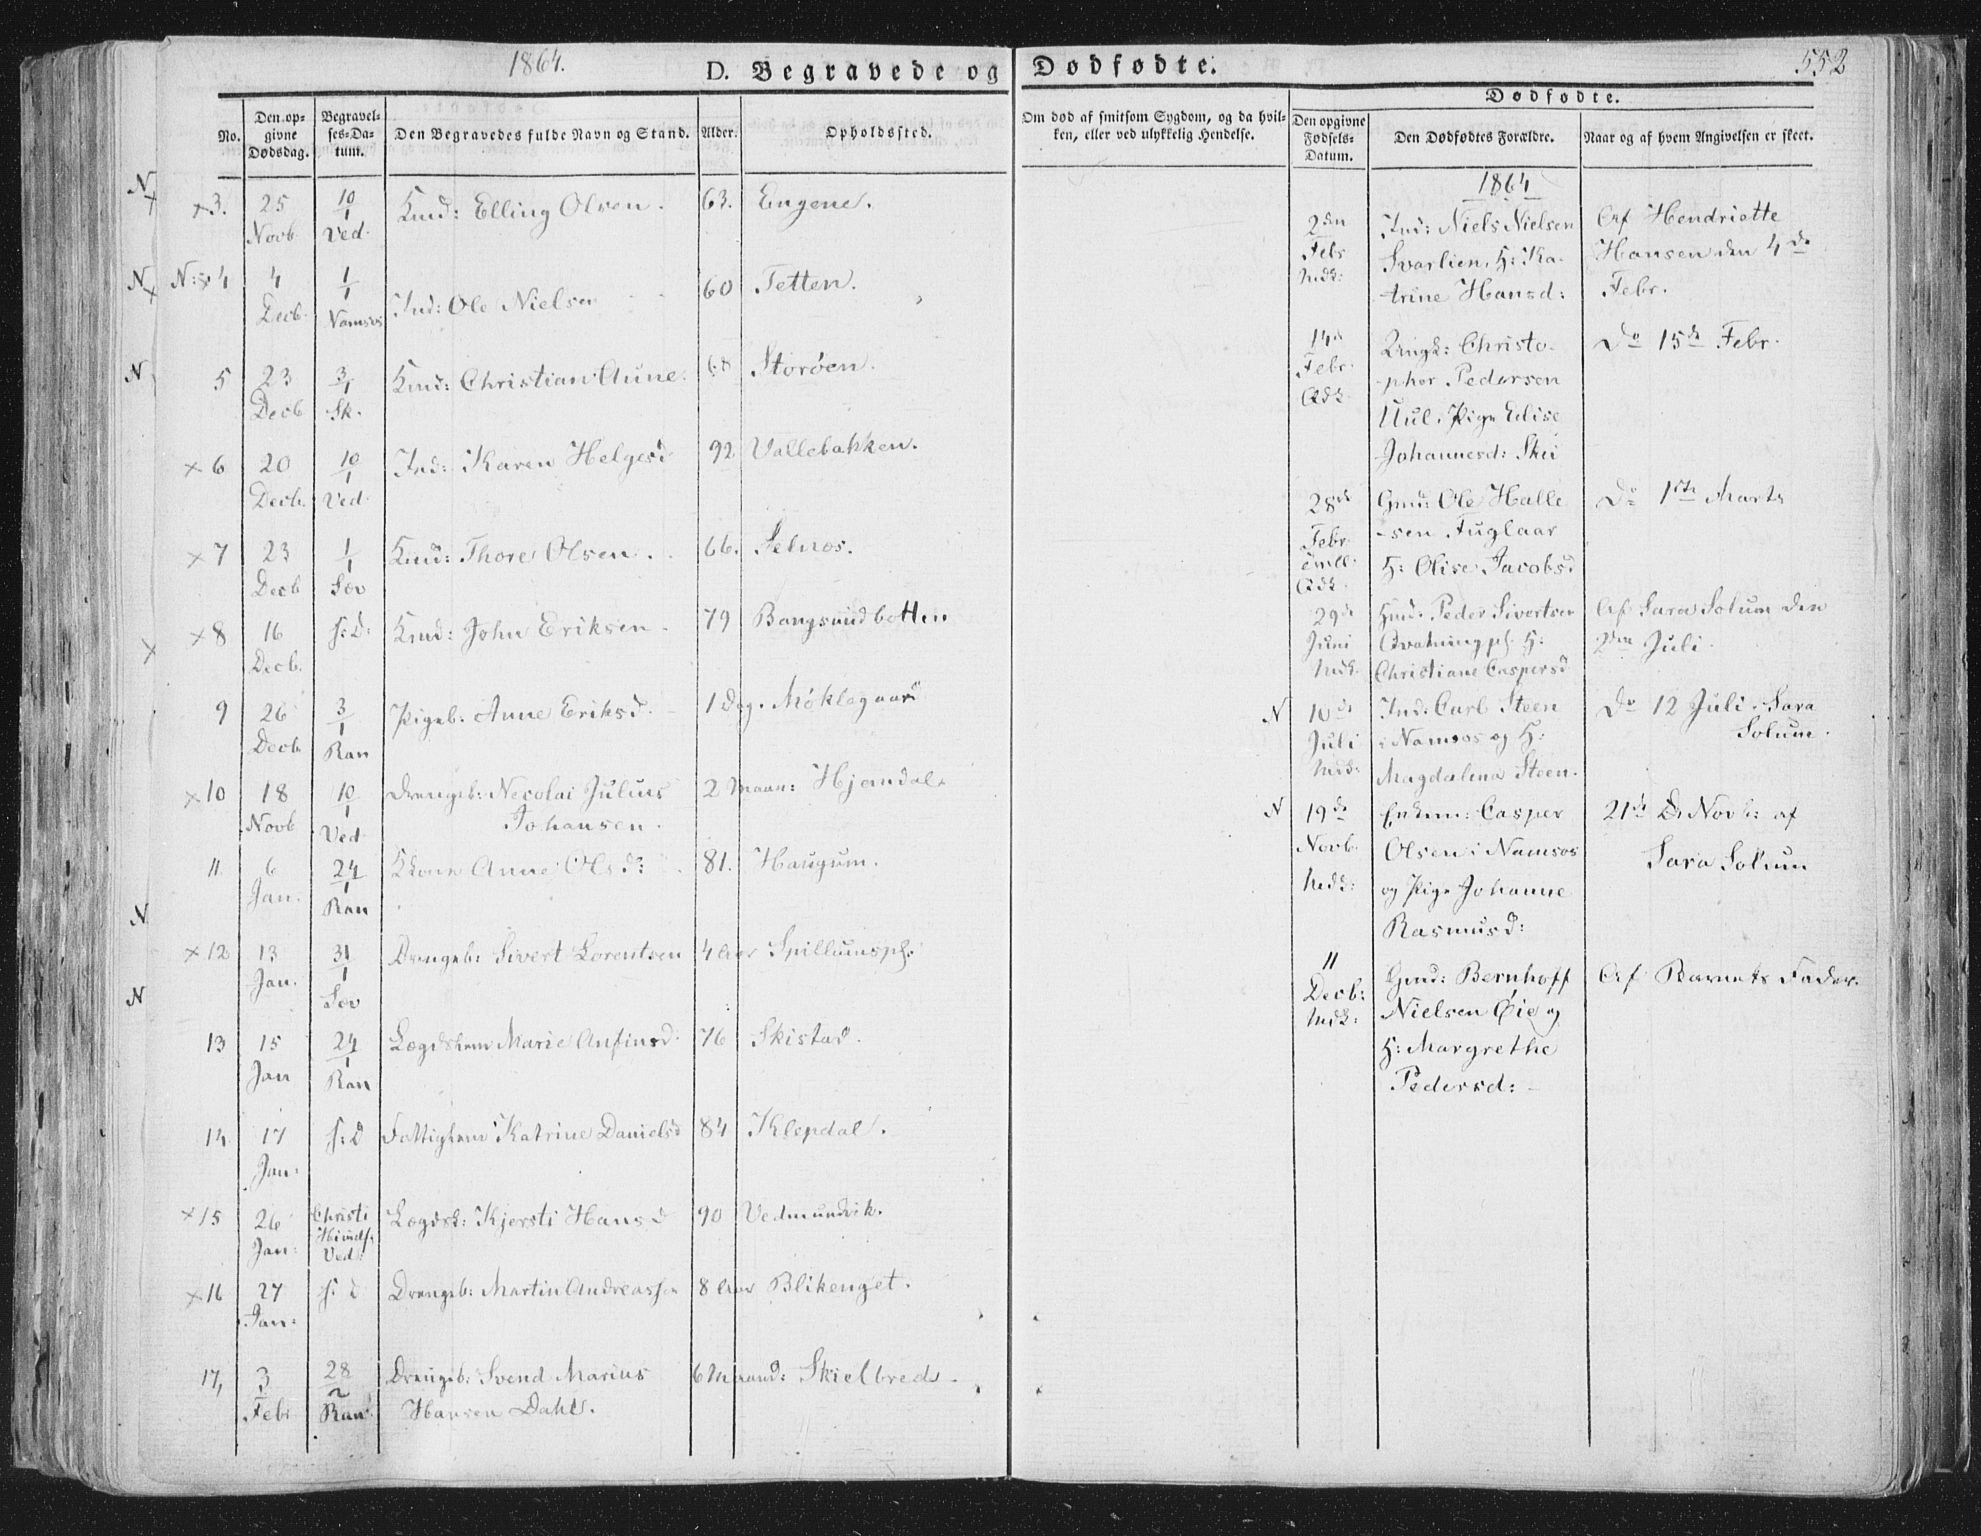 1864.
D. Begravede og Dødfødte.
552
No.
Den opgivne Dødsdag.
Begravelses-Datum.
Den Begravedes fulde Navn og Stand.
Alder.
Opholdssted.
Om død af smitsom Sygdom, og da hvilken, eller ved ulykkelig Hendelse.
Dødfødte.
Den opgivne Fødsels-Datum.
Den Dødfødtes Forældre.
Naar og af hvem Angivelsen er skeet.
N x3. 25 Novb 10/1 Ved. Kmd: Elling Olsen. 63. Engene.
N N: x4 4 Decb. 1/1 Namsos Ind: Ole Nielsen 60 Tetten.
N 5 23 Decb 3/1 Sk. Kmd: Christian Aune. 68 Storøen.
x6 20 Decb. 10/1 Ved. Ind: Karen Helgesd 92 Vallebakken.
x7 23 Decb 1/1 Sæv Kmd: Thore Olsen. 66. Selnøs.
x8 16 Decb. s: D: Kmd: John Eriksen. 79 Bangsundbotten
9 26 Decb. 3/1 Ran Pigeb: Anne Eriksd. 1 Dag. Møklegaard
x10 18 Novb 10/1 Ved. Drengeb: Nicolai Julius
Johansen. 2 Maan: Hjendal.
11 6 Jan. 24/1 Ran Kkone Anne Olsd: 81. Haugum.
N x12 13 Jan. 31/1 Sæv Drengeb: Sivert Lorentsen 4 Aar Spillumspl:
N 13 15 Jan 24/1 Ran Lægdslem Marie Anfinsd. 76 Skistad.
14 17 Jan: s: D Fattiglem Katrine Danielsd 84 Klepdal.
x15 26 Jan: Christi Himdf: Ved: Lægdsl: Kjersti Hansd 90 Vedmundvik.
x16 27 Jan: s: D Drengeb: Martin Andreass. 8 Aar Blikenget.
17, 3 Feb: 28/2 Ran. Drengeb: Svend Marius
Hansen Dahl. 6 Maand: Skielbred.
1864
2den Febr Ind: Niels Nielsen
Svarlien, H: Ka-
trine Hansd:
Af Hendriette
Hansen den 4de
Febr.
14de Febr. Ungk: Christo-
pher Pedersen
Pige Elise
Johannesd:
Do 15de Febr.
28de Febr. Gmd: Ole Halle
-sen Fuglaar
H: Olise Jacobsd
Do 1ste Marts
29de Juni Peder Sivertsen
H:
Christiane Caspersd
Af Sara Solum den
2den Juli.
N 10de Juli Ind: Carl Steen
i Namsos og H:
Magdalena Steen.
Do 12 Juli. Sara
Solum.
N 19de Novb. Enkem: Casper
Olsen i Namsos
og Pige Johanne
Rasmusd:
21de Novb: af
Sara Solum
11 Decb: Gmd: Bernhoff
Nielsen Øie og
H: Margrethe
Pedersd:
Af Barnets Fader.